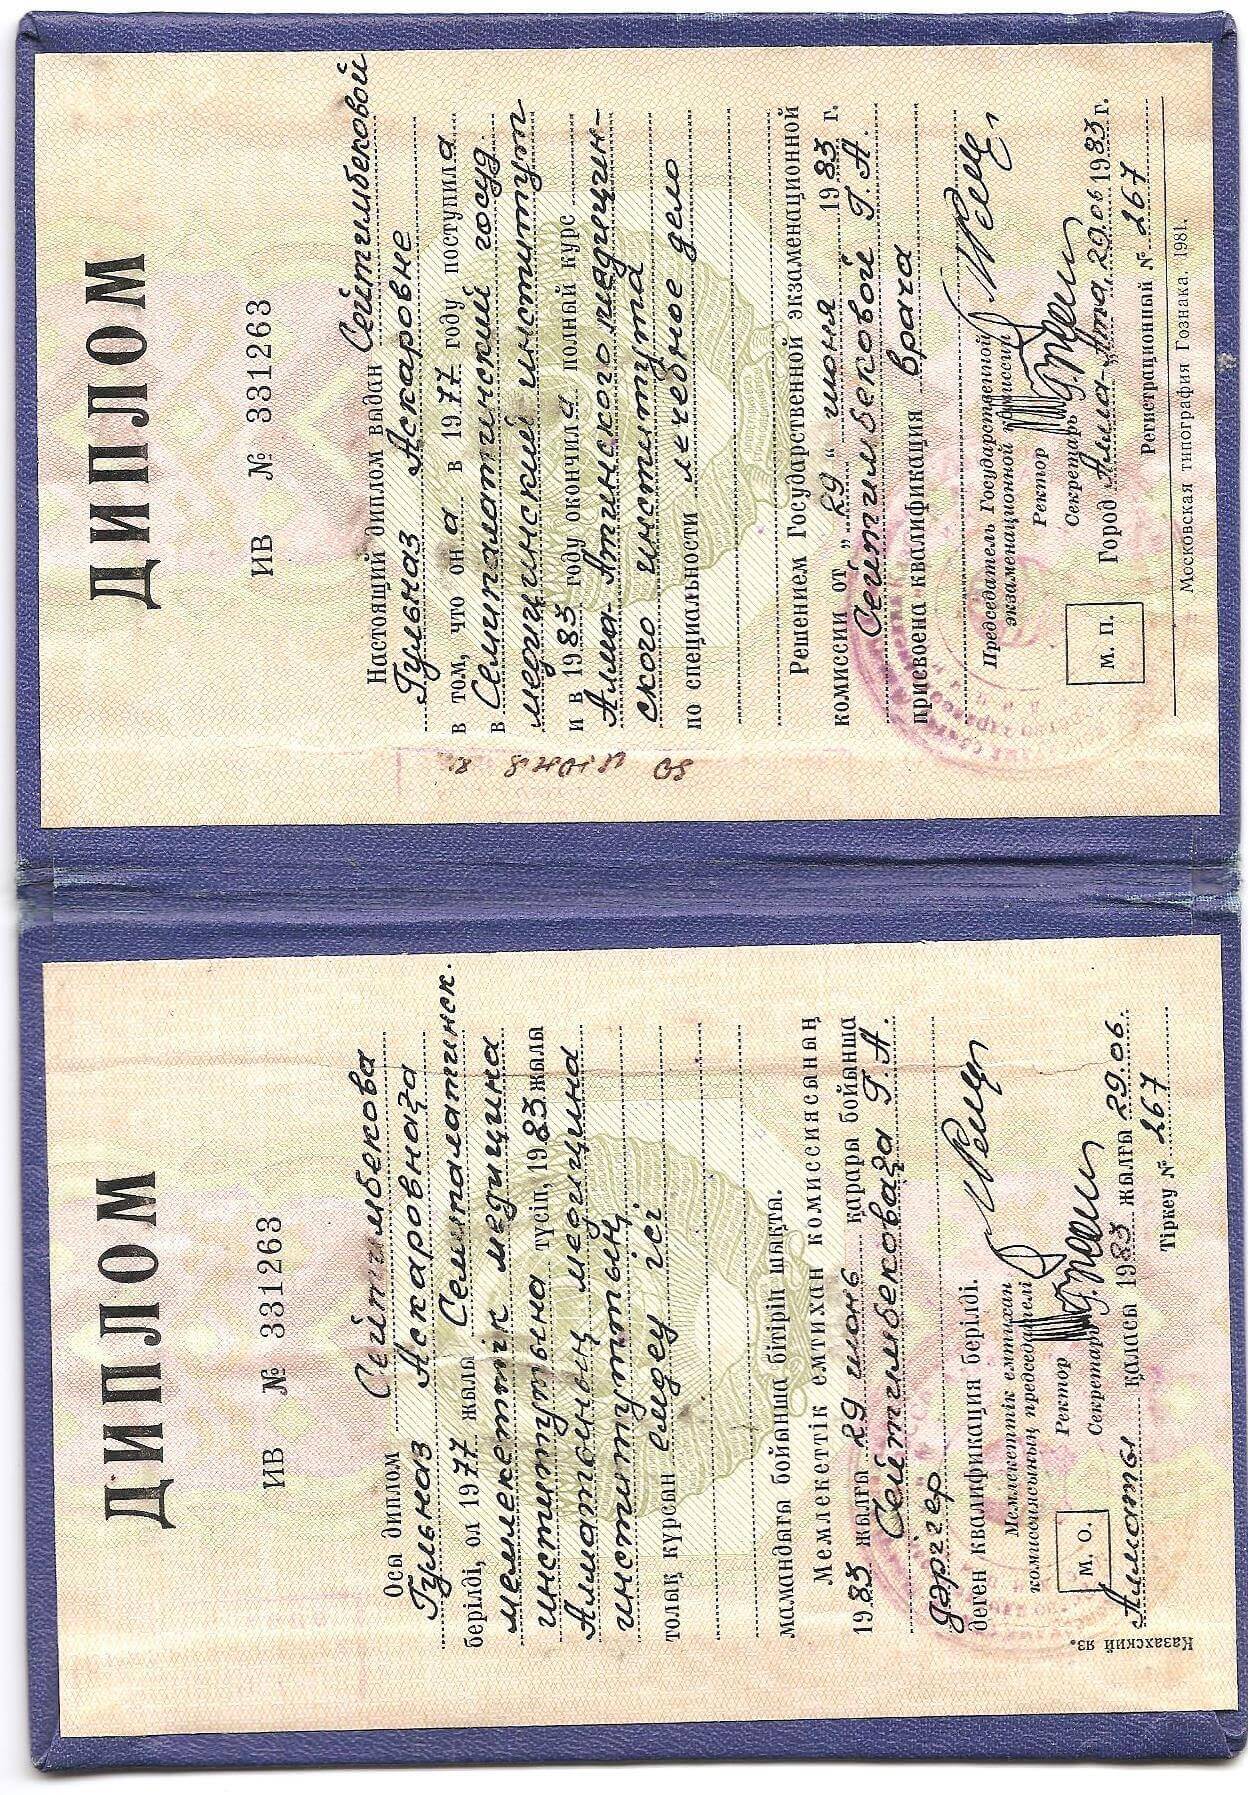 ДИПЛОМ
ИВ № 331263
Осы диплом Сейтимбекова
Гульназ Аскаровнаға
берілді, ол 1977 жылы Семипалатинск.
мемлекеттік медицина
институтына түсіп, 1983 жылы
Алматының медицина
институтының
толық курсын емдеу ісі
мамандығы бойынша бітіріп шықты.
Мемлекеттік емтихан комиссиясының
1983 жылғы 29 июнь қарары бойынша
Сейтимбековаға Г. А.
дәрігер
деген квалификация берілді.
Мемлекеттік емтихан
комиссиясының председателі
Ректор
Секретарь
М. О.
Алматы қаласы 1983 жылғы 29.06.
Тіркеу № 267
Казахский яз.
ДИПЛОМ
ИВ № 331263
Настоящий диплом выдан Сейтимбековой
Гульназ Аскаровне
в том, что он а в 1977 году поступила
в Семипалатинский госуд.
медицинский институт
и в 1983 году окончила полный курс
Алма-Атинского медицин-
ского института
по специальности лечебное дело
Решением Государственной экзаменационной
комиссии от „29“ июня 1983 г.
Сейтимбековой Г. А.
присвоена квалификация врача
Председатель Государственной
экзаменационной комиссии
Ректор
Секретарь
М. П.
Город Алма-Ата, 29.06 1983 г.
Регистрационный № 267
Московская типография Гознака. 1981.